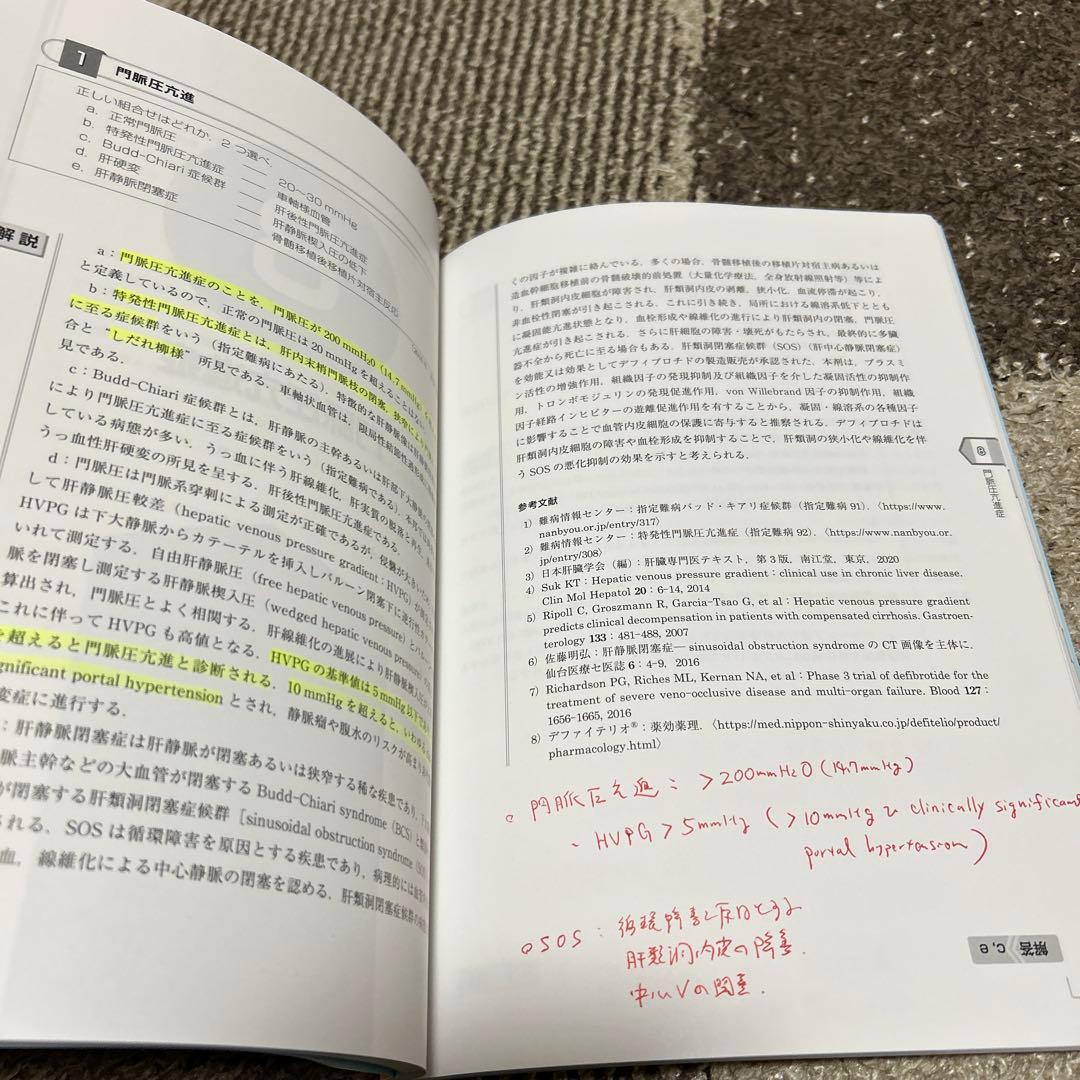 1
門脈圧亢進
正しい組合せはどれか．2つ選べ．
a．正常門脈圧 20～30 mmHg
b．特発性門脈圧亢進症 車軸様血管
c．Budd-Chiari 症候群 肝後性門脈圧亢進症
d．肝硬変 肝静脈楔入圧の低下
e．肝静脈閉塞症 骨髄移植後移植片対宿主反応
解説
a：門脈圧亢進症のことを，門脈圧が 200 mmH₂O（14.7 mmHg）
と定義しているので，正常の門脈圧は 20 mmHg を超えることは
b：特発性門脈圧亢進症とは，肝内末梢門脈枝の閉塞，狭窄により
に至る症候群をいう（指定難病にあたる）．特徴的な肝静脈像は
合と“しだれ柳様”所見である．車軸状血管は，限局性結節性過形成
見である．
c：Budd-Chiari 症候群とは，肝静脈の主幹あるいは肝部下大静脈の
により門脈圧亢進症に至る症候群をいう（指定難病である）．本邦では
している病態が多い．うっ血に伴う肝線維化，肝実質の脱落と再生
うっ血性肝硬変の所見を呈する．肝後性門脈圧亢進症である．
d：門脈圧は門脈系穿刺による測定が正確であるが，侵襲が大きい
して肝静脈圧較差（hepatic venous pressure gradient：HVPG）が
HVPG は下大静脈からカテーテルを挿入しバルーン閉塞下に
いれて測定する．自由肝静脈圧（free hepatic venous pressure）と
脈を閉塞し測定する肝静脈楔入圧（wedged hepatic venous pressure）の
算出され，門脈圧とよく相関する．肝線維化の進展により肝静脈楔入圧
これに伴って HVPG も高値となる．HVPG の基準値は 5 mmHg 以下であり
を超えると門脈圧亢進と診断される．10 mmHg を超えると，いわゆる
gnificant portal hypertension とされ，静脈瘤や腹水のリスクが高まり
変症に進行する．
：肝静脈閉塞症は肝静脈が閉塞あるいは狭窄する稀な疾患であり，
脈主幹などの大血管が閉塞する Budd-Chiari syndrome（BCS）と
が閉塞する肝類洞閉塞症候群［sinusoidal obstruction syndrome（SOS）
される．SOS は循環障害を原因とする疾患であり，病理的には
血，線維化による中心静脈の閉塞を認める．肝類洞閉塞症候群の
くの因子が複雑に絡んでいる．多くの場合，骨髄移植後の移植片対宿主病あるいは
造血幹細胞移植前の骨髄破壊的前処置（大量化学療法，全身放射線照射等）等によ
り，肝類洞内皮細胞が障害され，肝類洞内皮の剥離，狭小化，血流停滞が起こり，
非血栓性閉塞が引き起こされる．これに引き続き，局所における線溶系低下ととも
に凝固能亢進状態となり，血栓形成や線維化の進行により肝類洞内の閉塞，門脈圧
亢進症が引き起こされる．さらに肝細胞の障害・壊死がもたらされ，最終的に多臓
器不全から死亡に至る場合もある．肝類洞閉塞症候群（SOS）（肝中心静脈閉塞症）
を効能又は効果としてデフィブロチドの製造販売が承認された．本剤は，プラスミ
ン活性の増強作用，組織因子の発現抑制及び組織因子を介した凝固活性の抑制作
用，トロンボモジュリンの発現促進作用，von Willebrand 因子の抑制作用，組織
因子経路インヒビターの遊離促進作用を有することから，凝固・線溶系の各種因子
に影響することで血管内皮細胞の保護に寄与すると推察される．デフィブロチドは
肝類洞内皮細胞の障害や血栓形成を抑制することで，肝類洞の狭小化や線維化を伴
う SOS の悪化抑制の効果を示すと考えられる．
参考文献
1）難病情報センター：指定難病バッド・キアリ症候群（指定難病 91）．〈https://www.
nanbyou.or.jp/entry/317〉
2）難病情報センター：特発性門脈圧亢進症（指定難病 92）．〈https://www.nanbyou.or.
jp/entry/308〉
3）日本肝臓学会（編）：肝臓専門医テキスト，第 3 版，南江堂，東京，2020
4）Suk KT：Hepatic venous pressure gradient：clinical use in chronic liver disease.
Clin Mol Hepatol 20：6-14, 2014
5）Ripoll C, Groszmann R, Garcia-Tsao G, et al：Hepatic venous pressure gradient
predicts clinical decompensation in patients with compensated cirrhosis. Gastroen-
terology 133：481-488, 2007
6）佐藤明弘：肝静脈閉塞症― sinusoidal obstruction syndrome の CT 画像を主体に．
仙台医療セ医誌 6：4-9, 2016
7）Richardson PG, Riches ML, Kernan NA, et al：Phase 3 trial of defibrotide for the
treatment of severe veno-occlusive disease and multi-organ failure. Blood 127：
1656-1665, 2016
8）デファイテリオ®：薬効薬理．〈https://med.nippon-shinyaku.co.jp/defitelio/product/
pharmacology.html〉
8
門脈圧亢進症
門脈圧亢進：＞200mmH2O（14.7mmHg）
HVPG＞5mmHg（＞10mmHgで clinically significant
portal hypertension）
SOS：循環障害を原因とする
肝類洞内皮の障害．
中心Vの閉塞．
解答 c, e